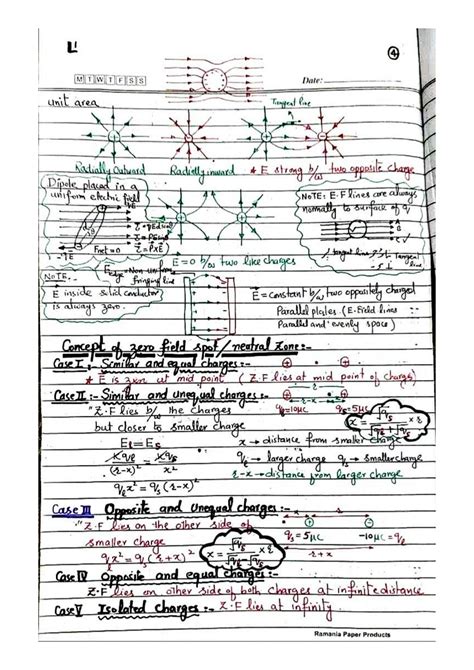 L1
④
M T W T F S S
Date:
unit area
Tangent line
Radially Outward
Radially inward
* E strong b/w two opposite charge
Dipole placed in a
uniform electric field
qE
-qE
τ = qEd sin
τ = PE sin
Fnet = 0
τ = P×E
E = 0 b/w two like charges
NOTE: E.F lines are always
normally to surface of q
tangent line
Tangent
line
NOTE:-
E inside solid conductor
is always zero.
Eedge = Non-uniform
fringing line
E = constant b/w two oppositely charged
Parallel plates (E-field lines
Parallel and evenly space)
Concept of zero field spot/neutral zone:-
Case I :- Similar and equal charges:-
* E is zero at mid point (Z.F lies at mid point of charge)
Case II :- Similar and unequal charges:-
Z.F lies b/w the charges
but closer to smaller charge
qℓ=10μC
qs=5μC
x = √qs / √qℓ + √qs × r
Eℓ = Es
x → distance from smaller charge
Kqℓ/(r-x)² = Kqs/x²
qℓ → larger charge qs → smaller charge
r-x → distance from larger charge
qℓx² = qs(r-x)²
Case III Opposite and unequal charges:-
Z.F lies on the other side of
smaller charge
qs = 5μC
-10μC = qℓ
r+x
qℓx² = qs(r+x)²
x = √qs / √qℓ - √qs × r
Case IV Opposite and equal charges:-
Z.F lies on other side of both charges at infinite distance
Case V Isolated charges:- Z.F lies at infinity
Ramania Paper Products